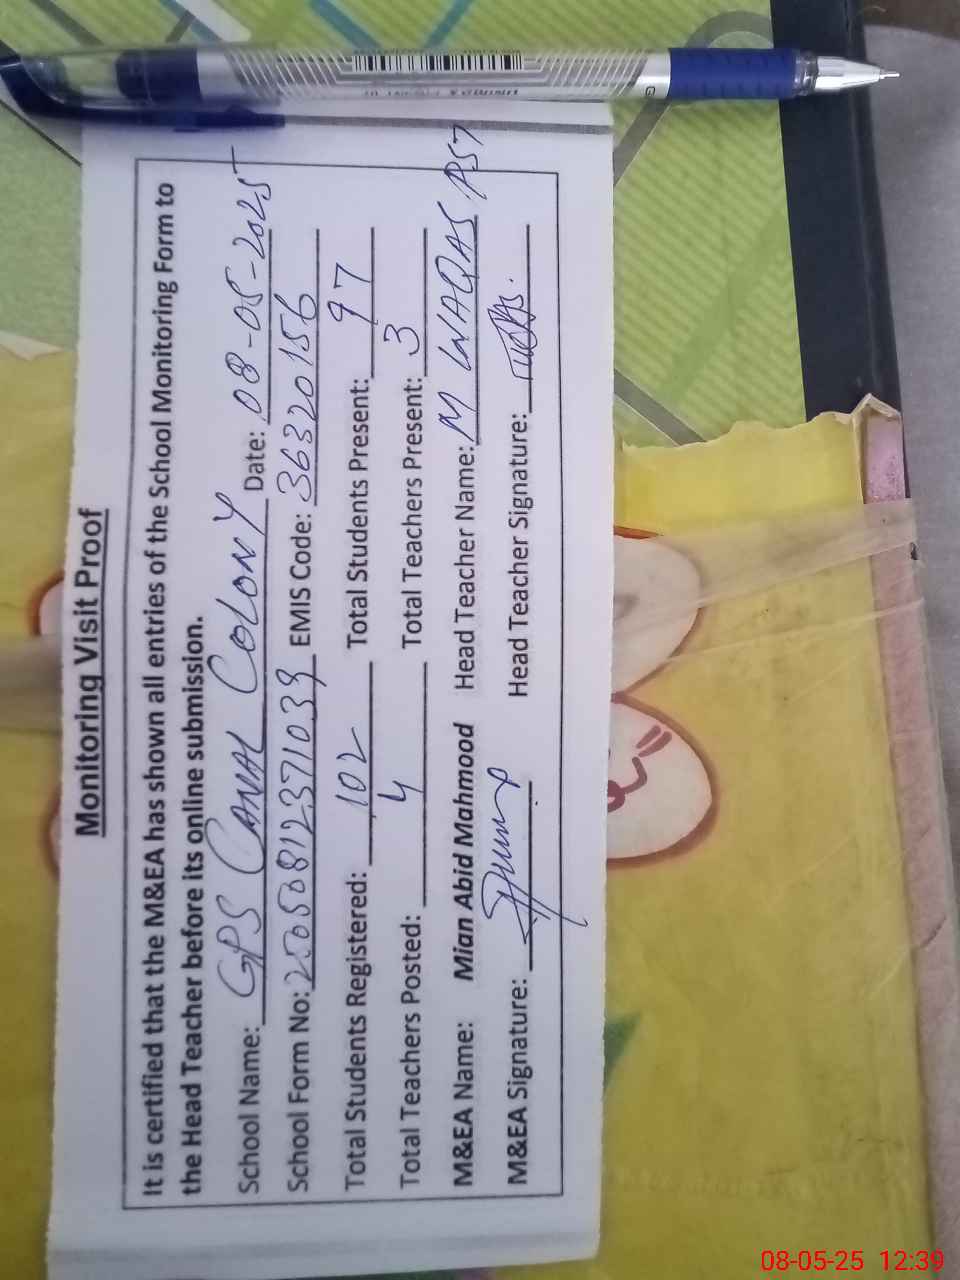 Monitoring Visit Proof
It is certified that the M&EA has shown all entries of the School Monitoring Form to
the Head Teacher before its online submission.
School Name: GPS CANAL COLONY Date: 08-05-2025
School Form No: 25050812371039 EMIS Code: 36320156
Total Students Registered: 102 Total Students Present: 97
Total Teachers Posted: 4 Total Teachers Present: 3
M&EA Name: Mian Abid Mahmood Head Teacher Name: M WAQAS PST
M&EA Signature: Head Teacher Signature:
08-05-25 12:39